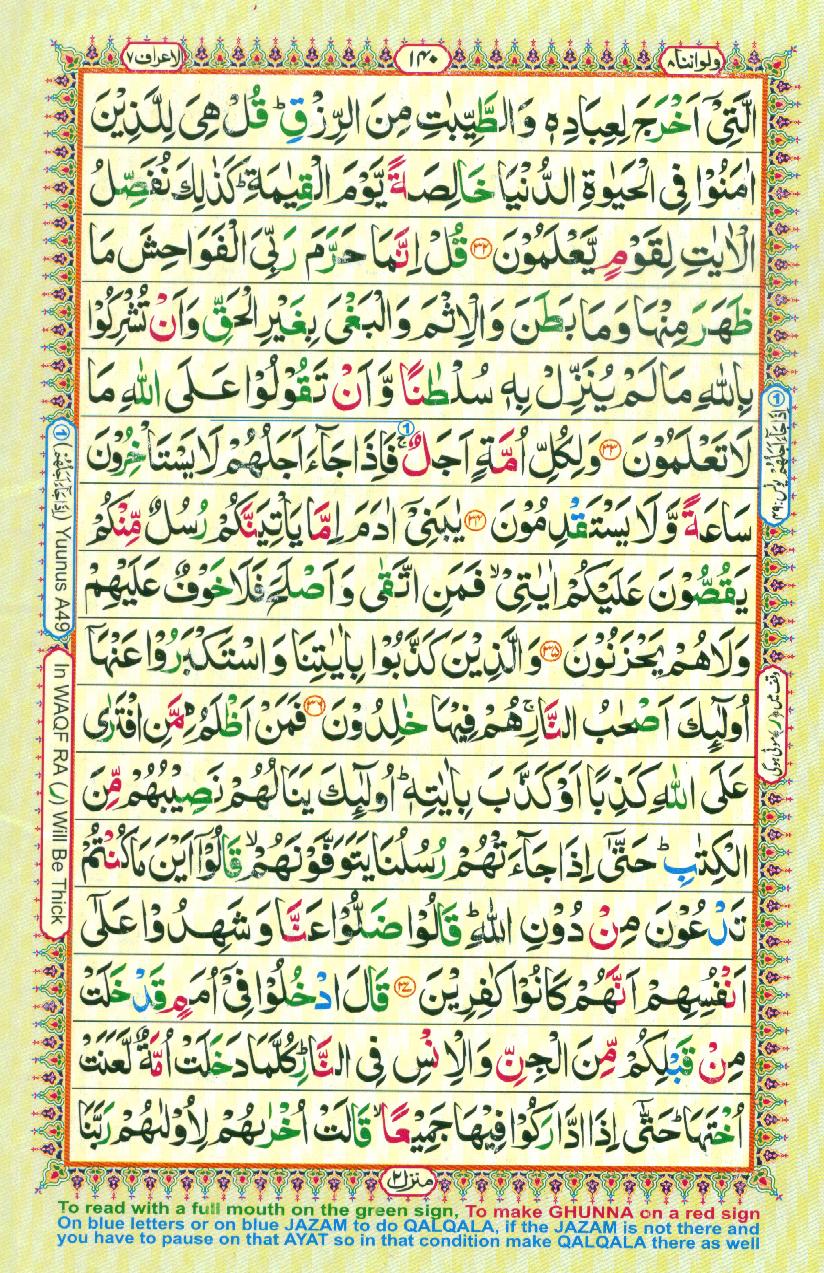 ولواننا ۸
۱۴۰
الاعراف ۷
الَّتِیْۤ اَخْرَجَ لِعِبَادِهٖ وَالطَّیِّبٰتِ مِنَ الرِّزْقِ ؕ قُلْ هِیَ لِلَّذِیْنَ
اٰمَنُوْا فِی الْحَیٰوةِ الدُّنْیَا خَالِصَةً یَّوْمَ الْقِیٰمَةِ ؕ كَذٰلِكَ نُفَصِّلُ
الْاٰیٰتِ لِقَوْمٍ یَّعْلَمُوْنَ ۳۲ قُلْ اِنَّمَا حَرَّمَ رَبِّیَ الْفَوَاحِشَ مَا
ظَهَرَ مِنْهَا وَمَا بَطَنَ وَالْاِثْمَ وَالْبَغْیَ بِغَیْرِ الْحَقِّ وَاَنْ تُشْرِكُوْا
بِاللّٰهِ مَا لَمْ یُنَزِّلْ بِهٖ سُلْطٰنًا وَّاَنْ تَقُوْلُوْا عَلَی اللّٰهِ مَا
لَا تَعْلَمُوْنَ ۳۳ وَلِكُلِّ اُمَّةٍ اَجَلٌ ۚ فَاِذَا جَآءَ اَجَلُهُمْ لَا یَسْتَاْخِرُوْنَ
سَاعَةً وَّلَا یَسْتَقْدِمُوْنَ ۳۴ یٰبَنِیْۤ اٰدَمَ اِمَّا یَاْتِیَنَّكُمْ رُسُلٌ مِّنْكُمْ
یَقُصُّوْنَ عَلَیْكُمْ اٰیٰتِیْ ۙ فَمَنِ اتَّقٰی وَاَصْلَحَ فَلَا خَوْفٌ عَلَیْهِمْ
وَلَا هُمْ یَحْزَنُوْنَ ۳۵ وَالَّذِیْنَ كَذَّبُوْا بِاٰیٰتِنَا وَاسْتَكْبَرُوْا عَنْهَاۤ
اُولٰٓئِكَ اَصْحٰبُ النَّارِ ۚ هُمْ فِیْهَا خٰلِدُوْنَ ۳۶ فَمَنْ اَظْلَمُ مِمَّنِ افْتَرٰی
عَلَی اللّٰهِ كَذِبًا اَوْ كَذَّبَ بِاٰیٰتِهٖ ؕ اُولٰٓئِكَ یَنَالُهُمْ نَصِیْبُهُمْ مِّنَ
الْكِتٰبِ ؕ حَتّٰۤی اِذَا جَآءَتْهُمْ رُسُلُنَا یَتَوَفَّوْنَهُمْ ۙ قَالُوْۤا اَیْنَ مَا كُنْتُمْ
تَدْعُوْنَ مِنْ دُوْنِ اللّٰهِ ؕ قَالُوْا ضَلُّوْا عَنَّا وَشَهِدُوْا عَلٰۤی
اَنْفُسِهِمْ اَنَّهُمْ كَانُوْا كٰفِرِیْنَ ۳۷ قَالَ ادْخُلُوْا فِیْۤ اُمَمٍ قَدْ خَلَتْ
مِنْ قَبْلِكُمْ مِّنَ الْجِنِّ وَالْاِنْسِ فِی النَّارِ ؕ كُلَّمَا دَخَلَتْ اُمَّةٌ لَّعَنَتْ
اُخْتَهَا ؕ حَتّٰۤی اِذَا ادَّارَكُوْا فِیْهَا جَمِیْعًا ۙ قَالَتْ اُخْرٰىهُمْ لِاُوْلٰىهُمْ رَبَّنَا
منزل ۲
۱ اِذَا جَآءَ اَجَلُهُمْ یونس: ۴۹
۱ (اِذَا جَآءَ اَجَلُهُمْ) Yuunus A49
In WAQF RA (ر) Will Be Thick
To read with a full mouth on the green sign, To make GHUNNA on a red sign
On blue letters or on blue JAZAM to do QALQALA, if the JAZAM is not there and
you have to pause on that AYAT so in that condition make QALQALA there as well